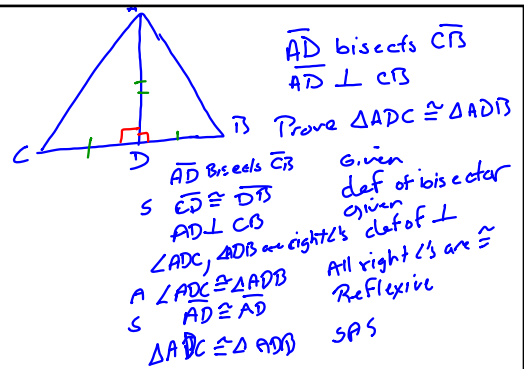 A
AD bisects CB
AD ⊥ CB
B Prove ΔADC ≅ ΔADB
C
D
AD Bisects CB Given
S CD ≅ DB def of bisector
AD ⊥ CB given
∠ADC, ∠ADB are right ∠'s def of ⊥
A ∠ADC ≅ ∠ADB All right ∠'s are ≅
S AD ≅ AD Reflexive
ΔADC ≅ Δ ADB SAS